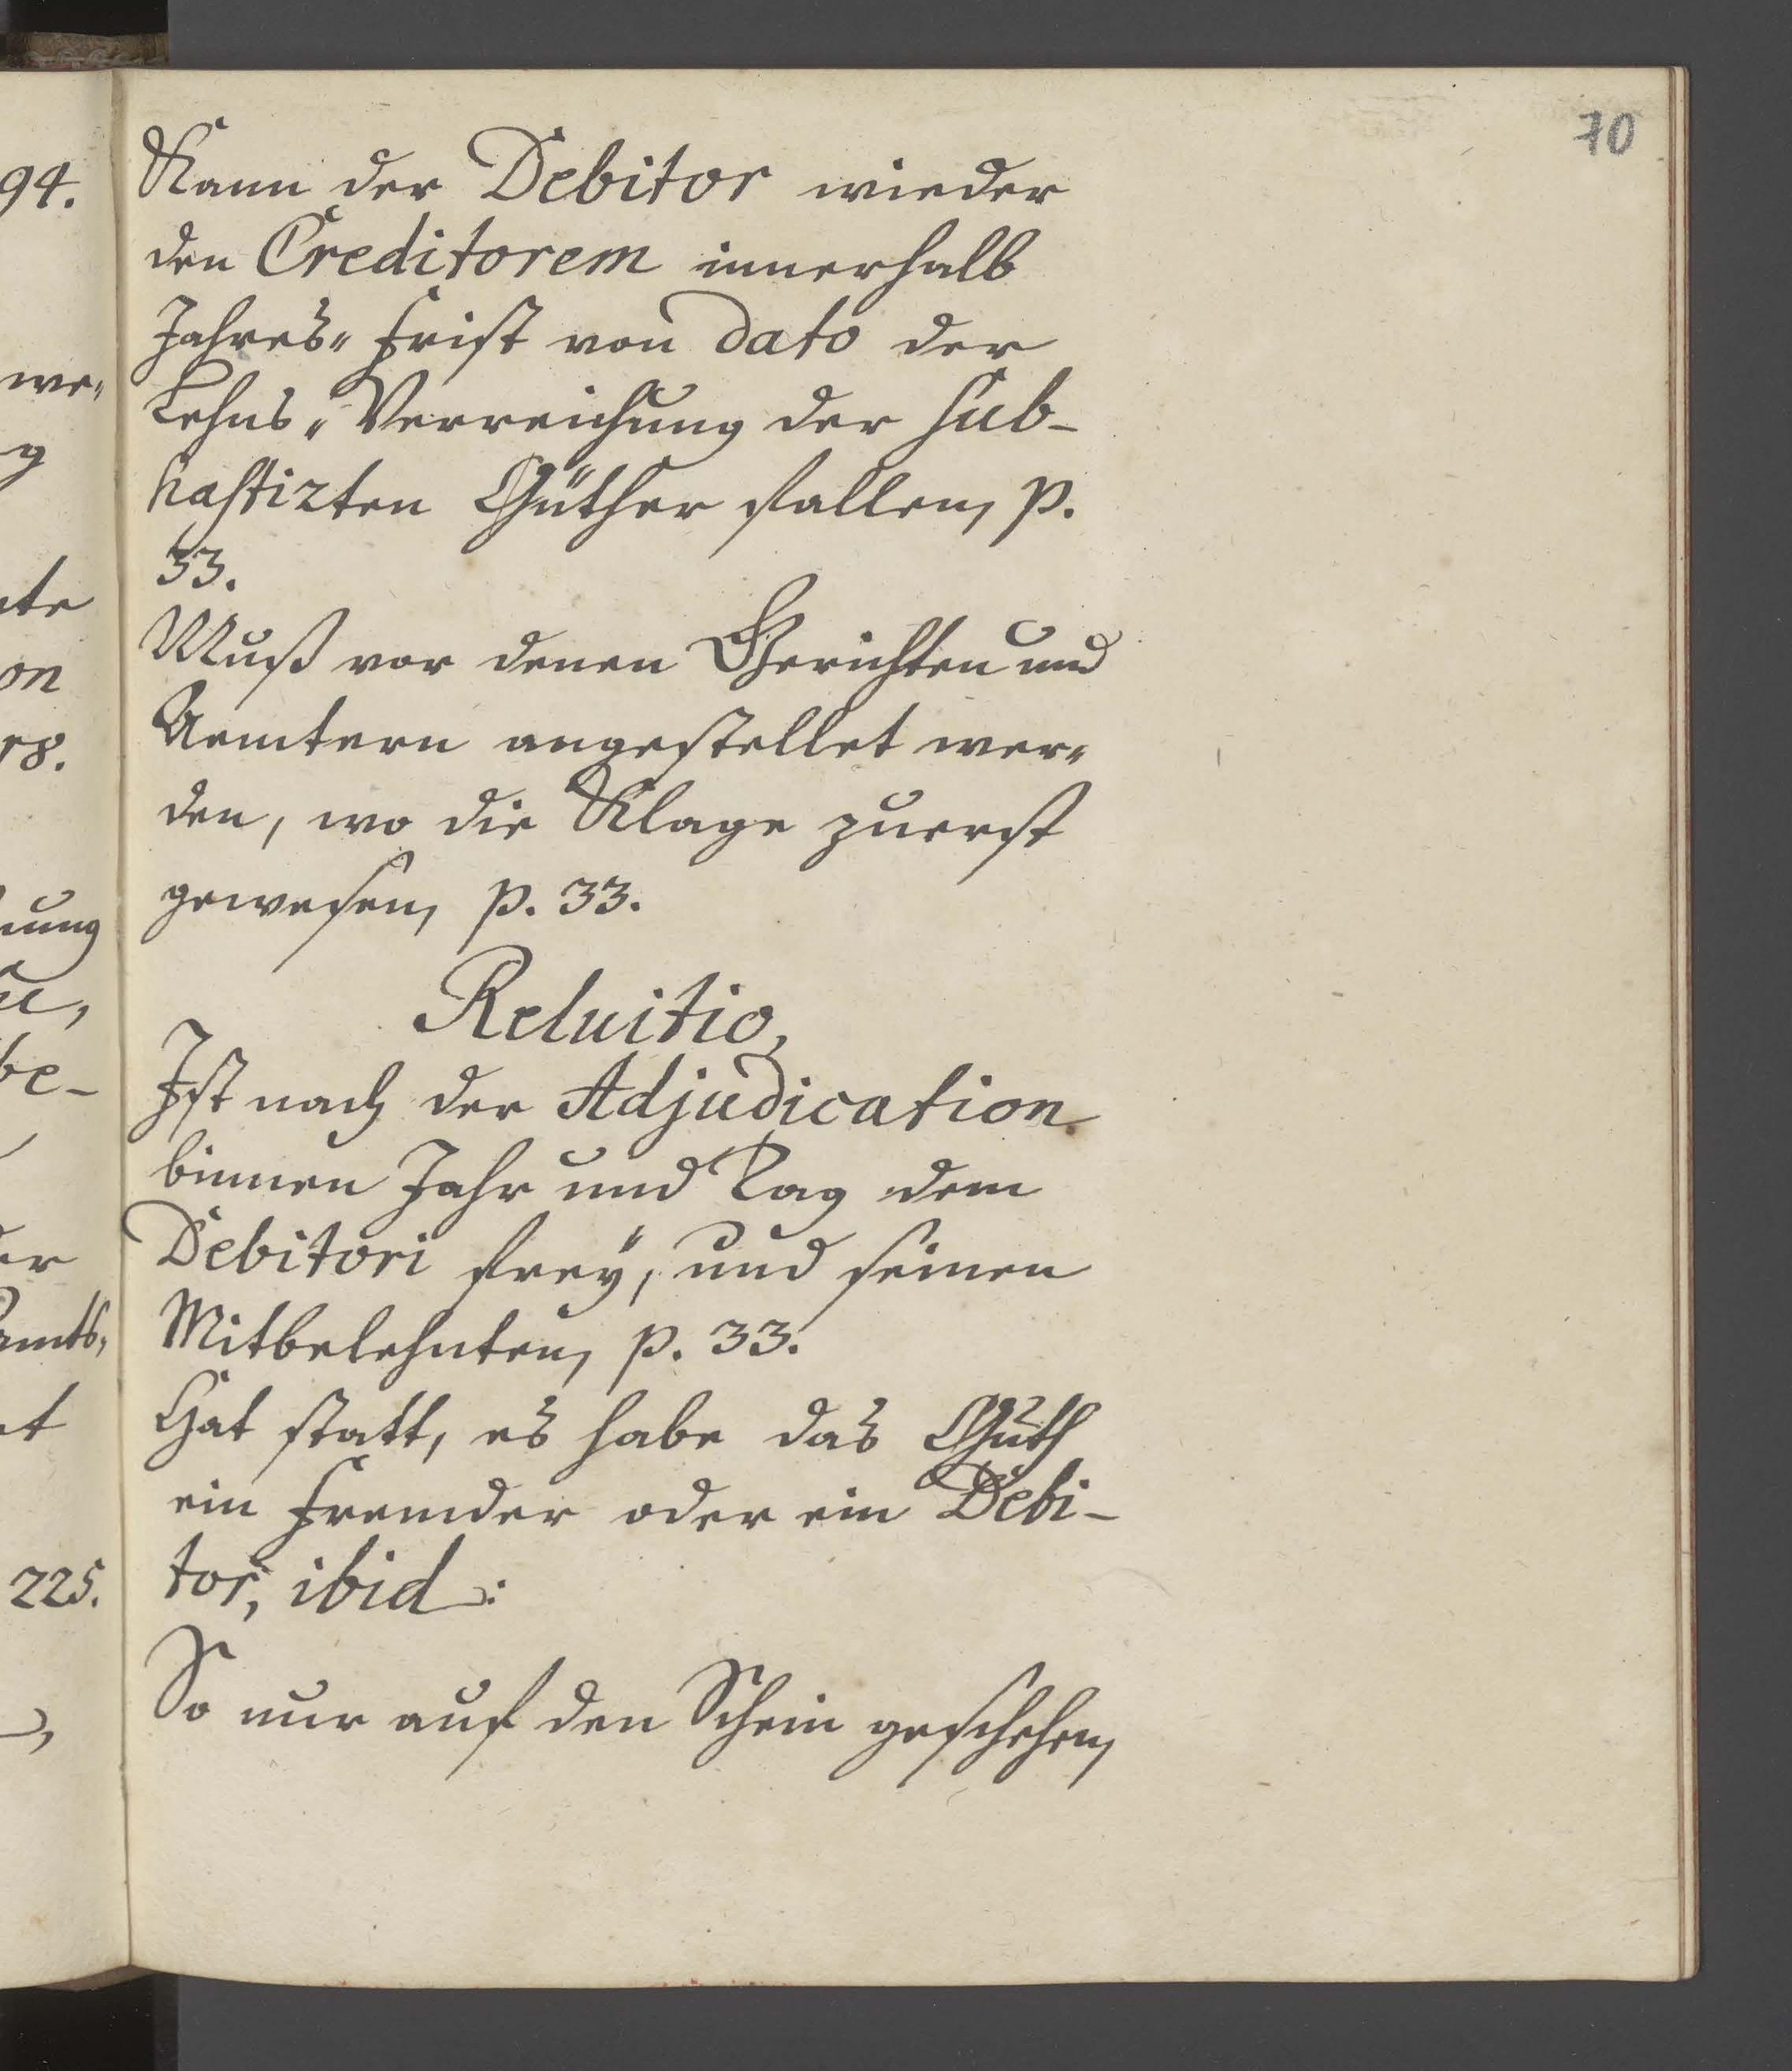 70
94.
we„
g
te
on
18.
nung
be-
er
amts„
t
225.
Kann der Debitor wieder
den Creditorem innerhalb
Jahres„ Frist von dato der
Lehns„ Verreichung der sub-
hastirten Güther fallen, p.
33.
Muß vor denen Gerichten und
Aemtern angestellet wer„
den, wo die Klage zuerst
gewesen, p. 33.
Reluitio,
Ist nach der Adjudication
binnen Jahr und Tag dem
Debitori frey, und seinen
Mitbelehnten, p. 33.
Hat statt, es habe das Guth
ein Fremder oder ein Debi-
tor, ibid:
So nur auf den Schein geschehen,